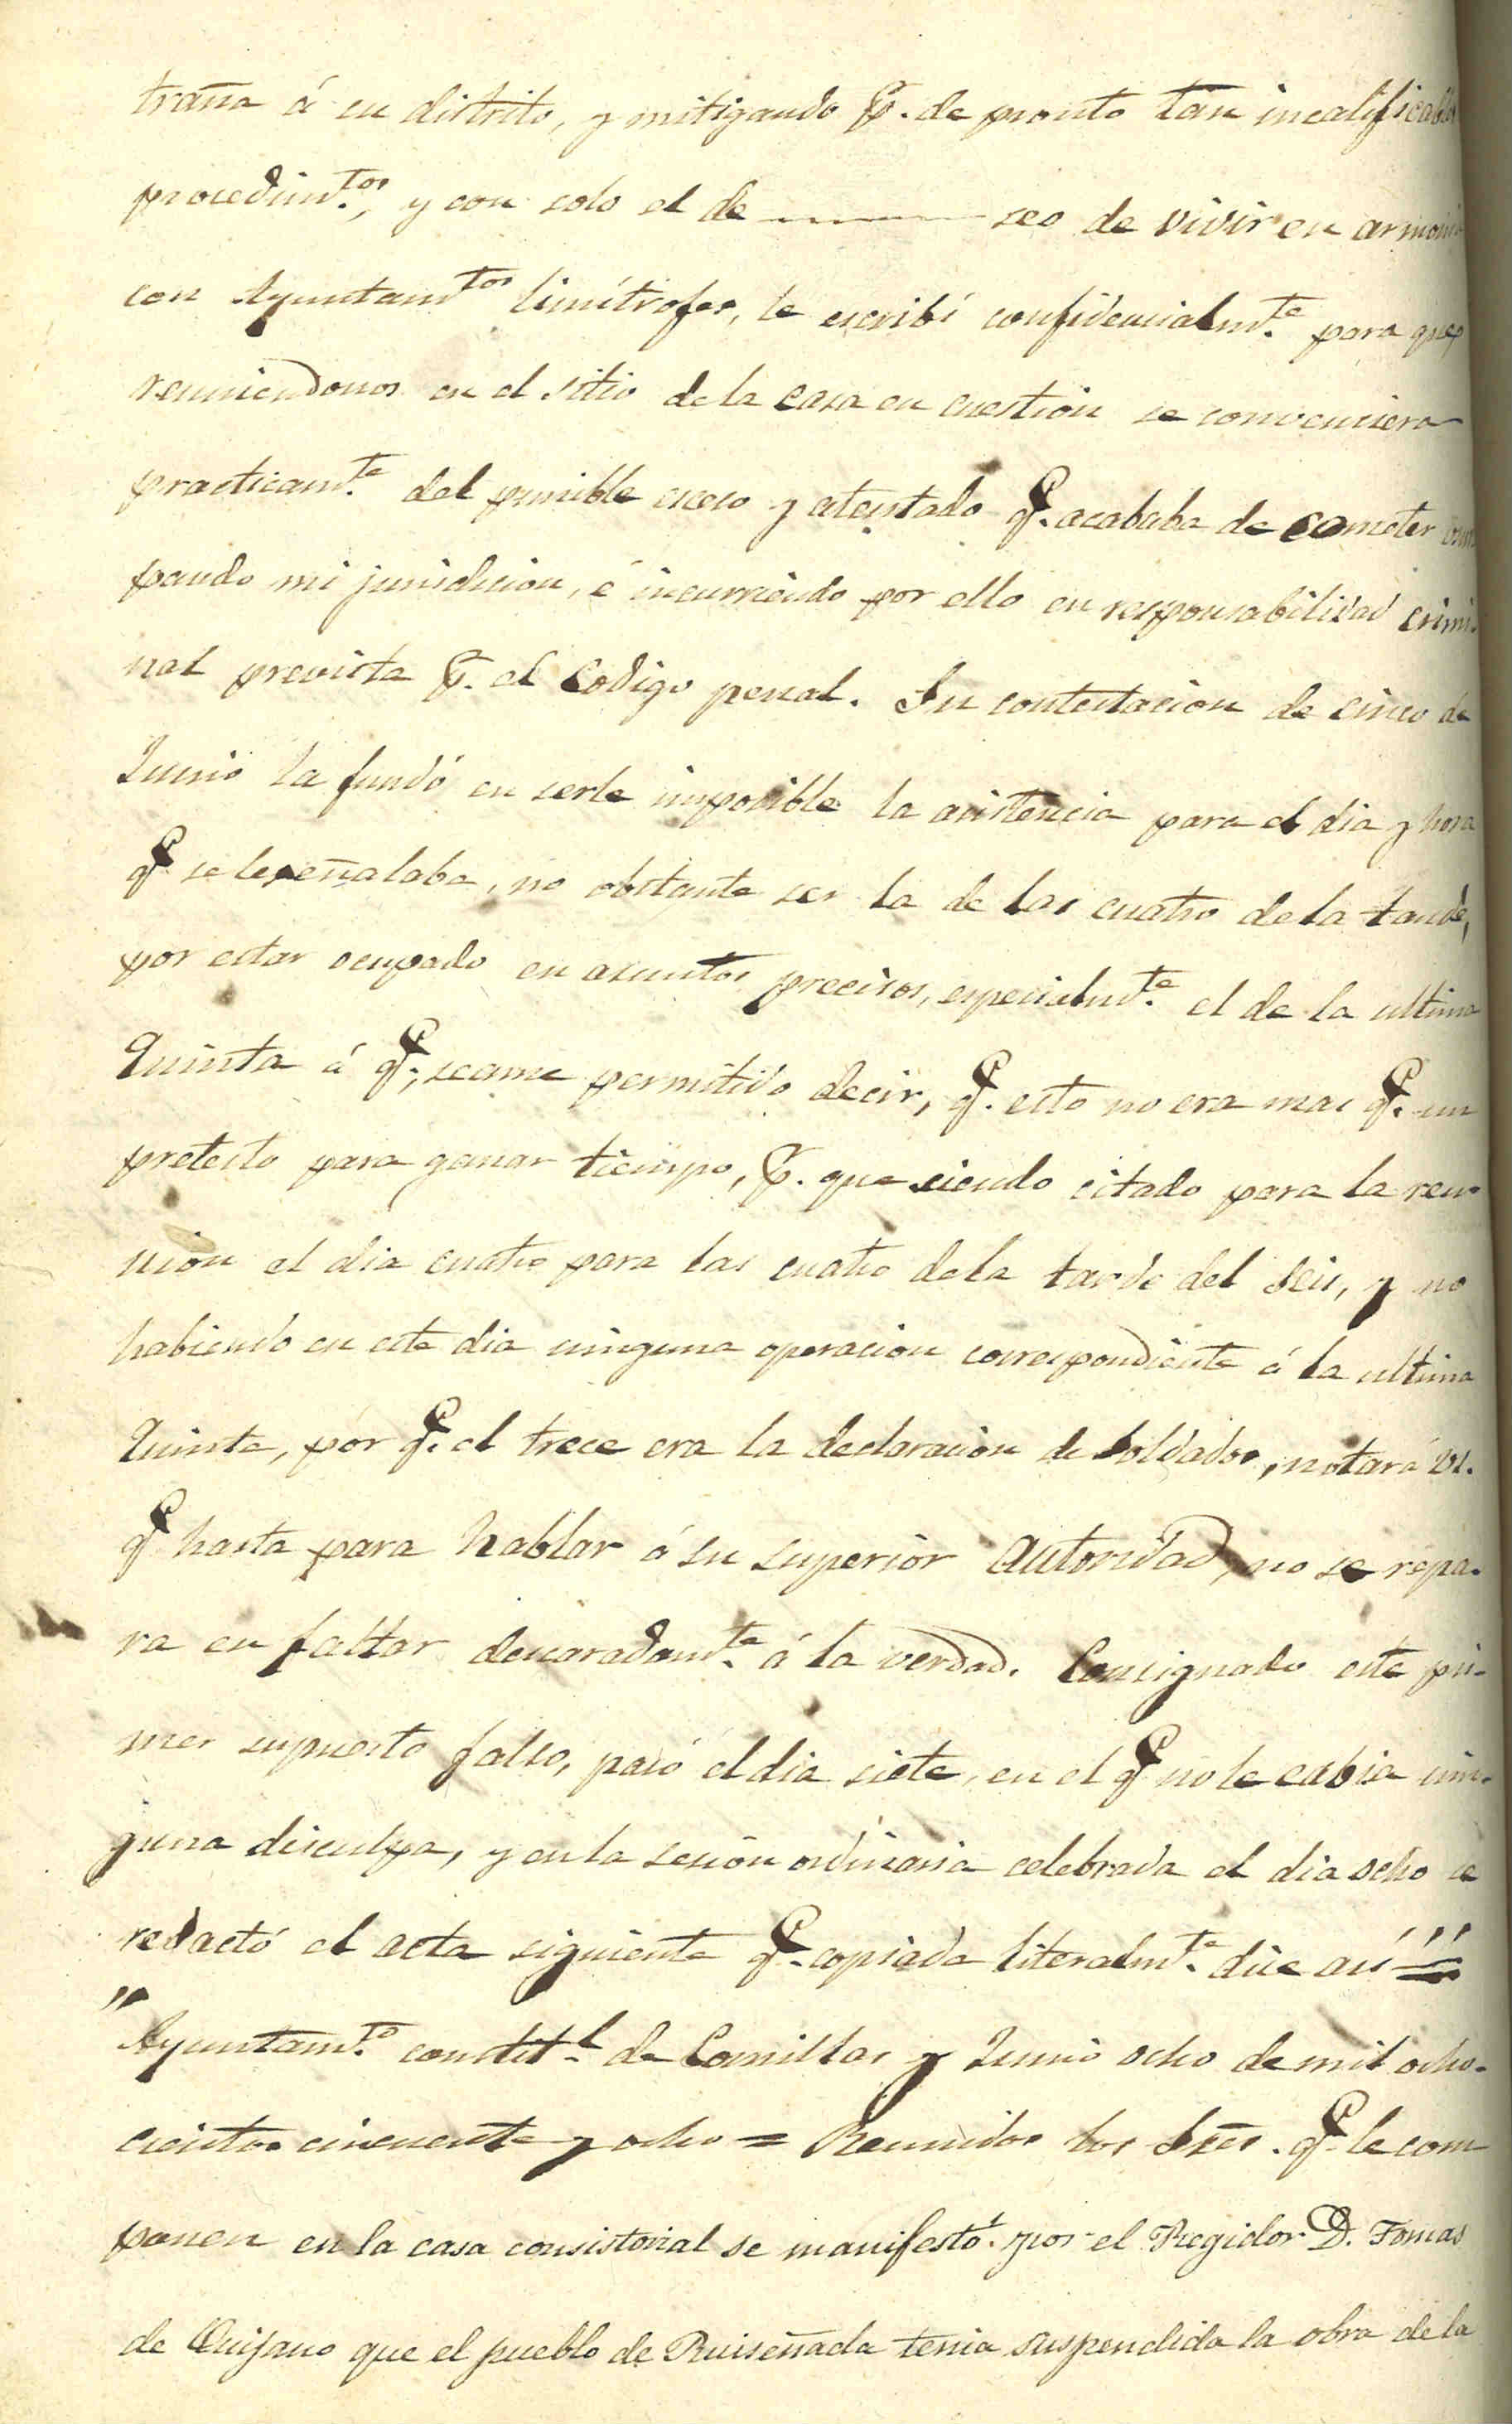 traña á su distrito, y mitigando p.r de pronto tan incalificable
procedim.tos, y con solo el de ——— seo de vivir en armonia
con Ayuntam.tos limítrofes, le escribí confidencialm.te para que
reuniendonos en el sitio de la casa en cuestion se convenciera
practicam.te del punible eceso y atentado q.e acababa de cometer usur
pando mi jurisdicion, é incurriendo por ello en responsabilidad crimi.
nal prevista p.r el Codigo penal. Su contestacion de cinco de
Junio la fundó en serle imposible la asistencia para el dia y hora
q.e se le señalaba, no obstante ser la de las cuatro de la tarde,
por estar ocupado en asuntos precisos, especialm.te el de la ultima
Quinta á q.e, seame permitido decir, q.e esto no era mas q.e un
pretesto para ganar tiempo, p.r que siendo citado para la reu-
nion el dia cuatro para las cuatro de la tarde del seis, y no
habiendo en este dia ninguna operacion correspondiente á la ultima
Quinta, por q.e el trece era la declaracion de soldados, notará VS.
q.e hasta para hablar á su superior Autoridad, no se repa-
ra en faltar descaradam.te á la verdad. Consignado este pri-
mer supuesto falso, pasó el dia siete, en el q.e no le cabia nin-
guna disculpa, y en la sesion ordinaria celebrada el dia ocho se
redactó el acta siguiente q.e copiada literalm.te dice así =
"Ayuntam.to constit.l de Comillas y Junio ocho de mil ocho-
cientos cincuenta y ocho = Reunidos los Sres. q.e le com
ponen en la casa consistorial se manifestó por el Regidor D. Tomas
de Quijano que el pueblo de Ruiseñada tenia suspendida la obra de la